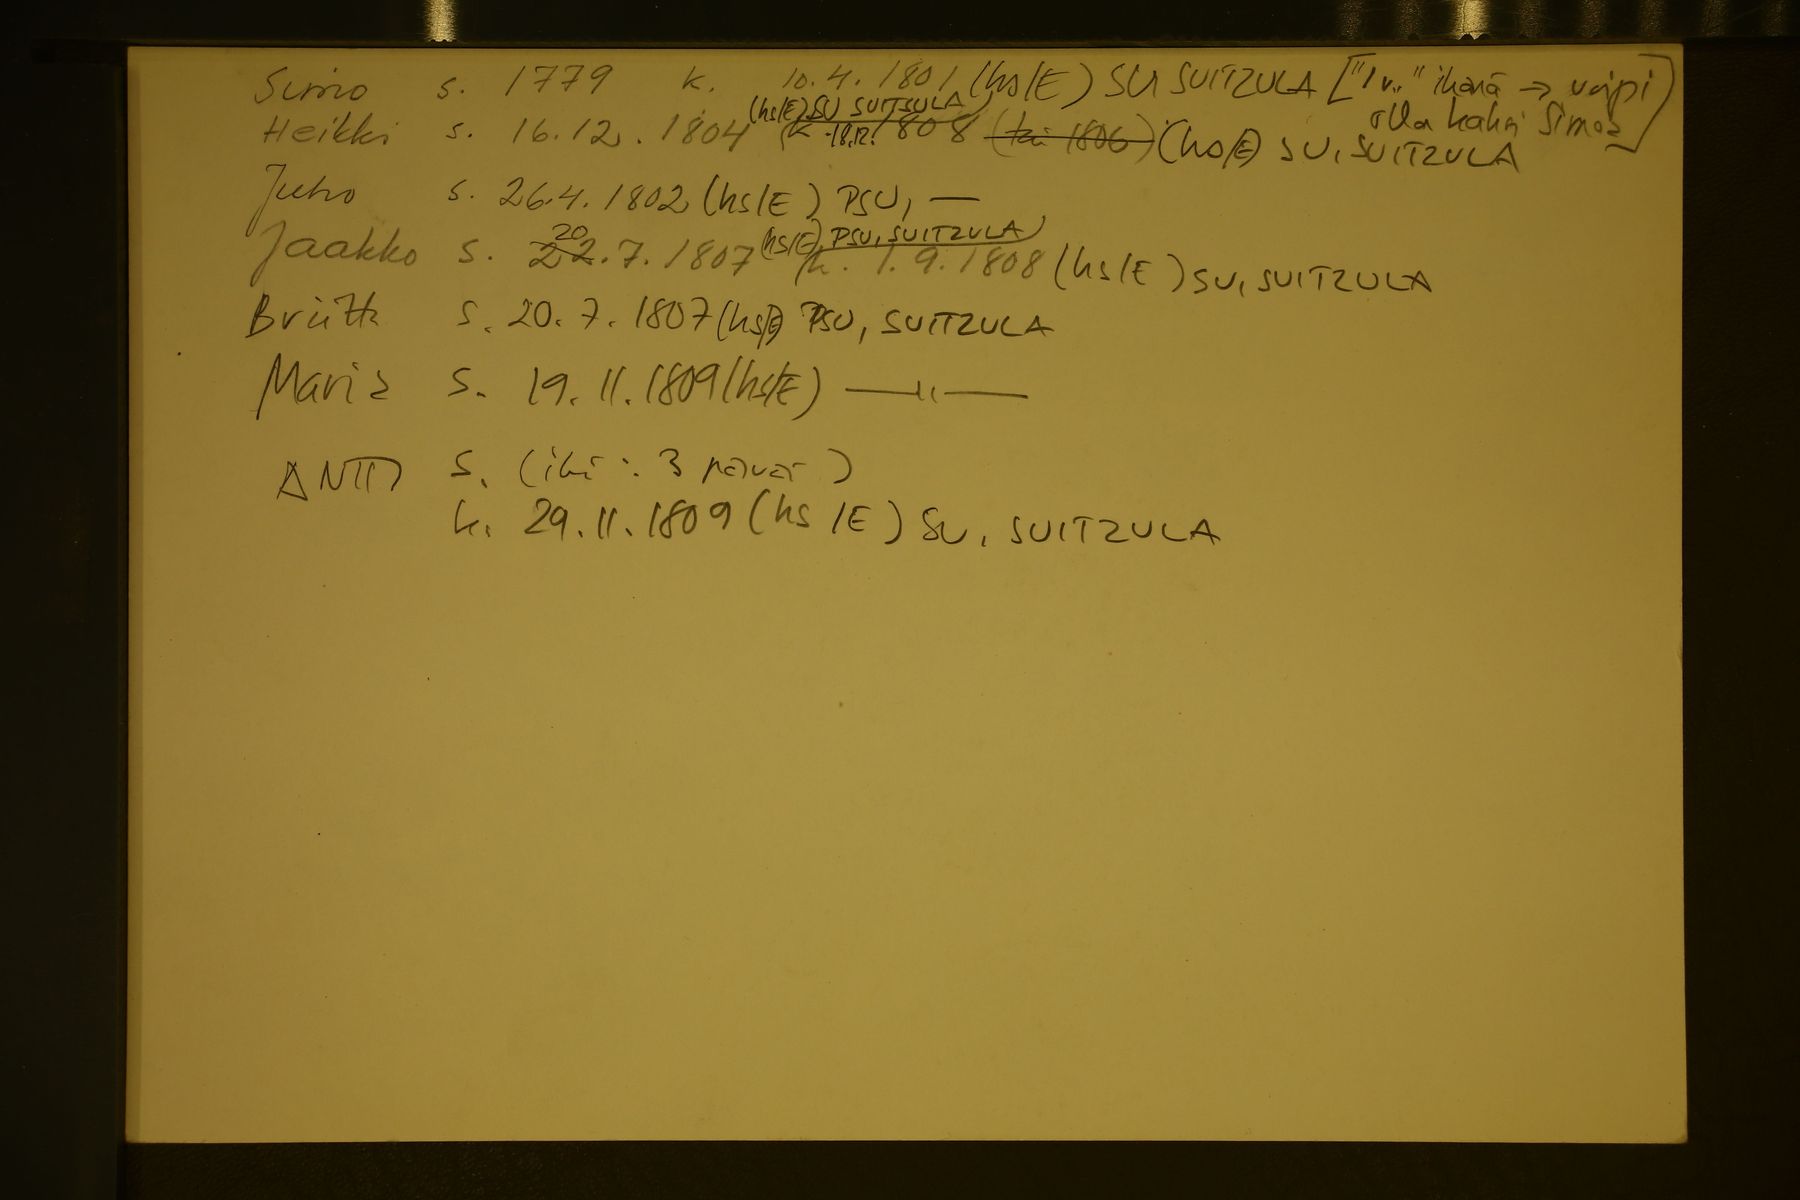 Simo s. 1779 k. 10.4.1801 (hs/E) SU SUITZULA ["1 v." ikänä → voipi
olla kaksi Simoa]
(hs/E) SU SUITSULA
Heikki s. 16.12.1804 (k. 18.12.1808 (tai 1806) (hs/E) SU, SUITZULA
Juho s. 26.4.1802 (hs/E) PSU, —
20 (hs/E) PSU, SUITZULA
Jaakko s. 22.7.1807 (k. 1.9.1808 (hs/E) SU, SUITZULA
Briitta s. 20.7.1807 (hs/E) PSU, SUITZULA
Maria s. 19.11.1809 (hs/E) —"—
ANTTI s. (ikä: 3 päivää)
k. 29.11.1809 (hs/E) SU, SUITZULA